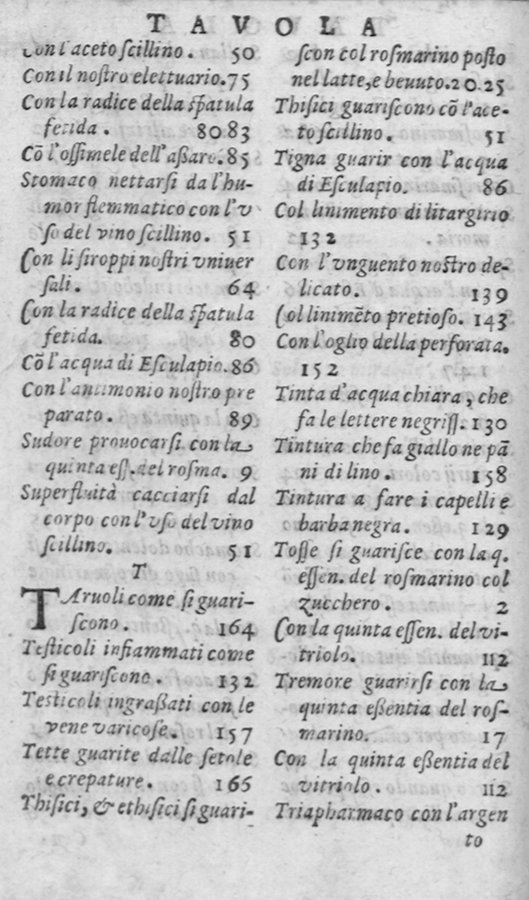 TAVOLA
Con l'aceto scillino. 50
Con il nostro elettuario. 75
Con la radice della spatula
fetida. 80 83
Cō l'ossimele dell'assaro. 85
Stomaco nettarsi da l'hu-
mor flemmatico con l'v
so del vino scillino. 51
Con li siroppi nostri vniuer
sali. 64
Con la radice della spatula
fetida. 80
Cō l'acqua di Esculapio. 86
Con l'antimonio nostro pre
parato. 89
Sudore prouocarsi con la
quinta ess. del rosma. 9
Superfluità cacciarsi dal
corpo con l'vso del vino
scillino. 51
T
TAruoli come si guari-
scono. 164
Testicoli infiammati come
si guariscono. 132
Testicoli ingrassati con le
vene varicose. 157
Tette guarite dalle setole
e crepature. 166
Thisici, & ethisici si guari-
scon col rosmarino posto
nel latte, e beuuto. 20.25
Thisici guariscono cō l'ace-
to scillino. 51
Tigna guarir con l'acqua
di Esculapio. 86
Col linimento di litargirio
132
Con l'vnguento nostro de-
licato. 139
Col linimēto pretioso. 143
Con l'oglio della perforata.
152
Tinta d'acqua chiara, che
fa le lettere negriss. 130
Tintura che fa giallo ne pā
ni di lino. 158
Tintura a fare i capelli e
barba negra. 129
Tosse si guarisce con la q.
essen. del rosmarino col
zucchero. 2
Con la quinta essen. del vi-
triolo. 112
Tremore guarirsi con la
quinta essentia del ros-
marino. 17
Con la quinta essentia del
vitriolo. 112
Triapharmaco con l'argen
to